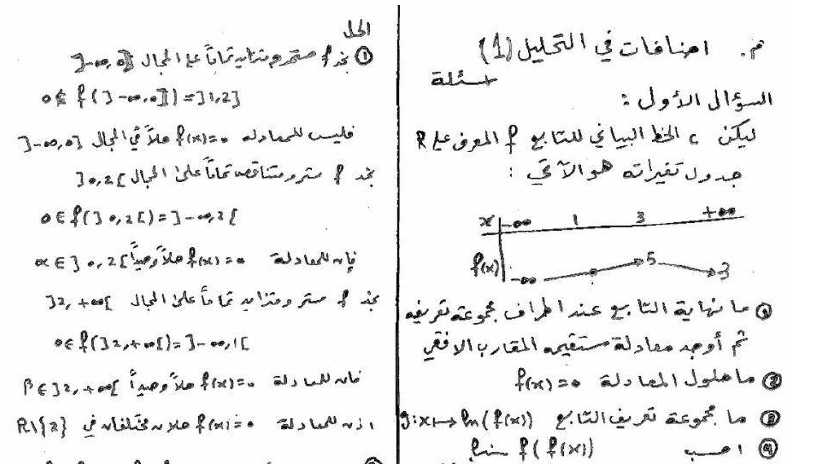 م. اضافات في التحليل (1)
اسئلة
السؤال الأول :
ليكن c الخط البياني للتابع f المعرف على R
جدول تغيراته هو الآتي :
x -∞ 1 3 +∞
f(x) -∞ 5 3
① ما نهاية التابع عند اطراف مجموعة تعريفه
ثم أوجد معادلة مستقيمه المقارب الافقي
② ما حلول المعادلة f(x)=0
③ ما مجموعة تعريف التابع g:x↦ln(f(x))
④ احسب lim f(f(x))
الحل
① نجد f مستمر ومتزايد تماماً على المجال ]-∞,0]
0∉f(]-∞,0])=]1,2]
فليس للمعادلة f(x)=0 حلاً في المجال ]-∞,0]
نجد f مستمر ومتناقص تماماً على المجال ]0,2[
0∈f(]0,2[)=]-∞,2[
فإن للمعادلة f(x)=0 حلاً وحيداً α∈]0,2[
نجد f مستمر ومتزايد تماماً على المجال ]2,+∞[
0∈f(]2,+∞[)=]-∞,1[
فإن للمعادلة f(x)=0 حلاً وحيداً β∈]2,+∞[
اذن للمعادلة f(x)=0 حلان مختلفان في R\{2}